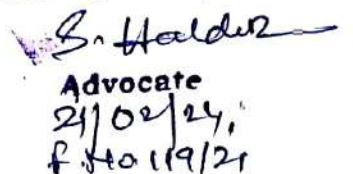 S. Halder
Advocate
21/02/24,
F. No 119/21